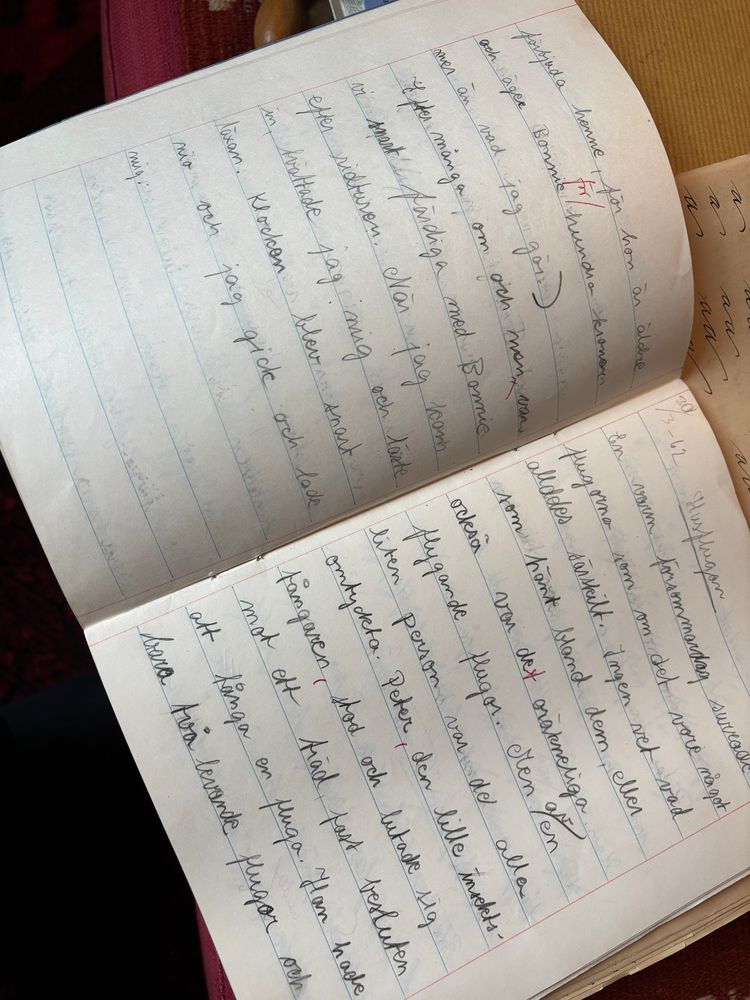 förbjuda henne, för hon är äldre
och äger Bonnie för hundra kronor
mer än vad jag gör)
Efter många om och men var
vi snart färdiga med Bonnie
efter ridturen. När jag kom
in, tvättade jag mig och läste
läxan. Klockan blev snart
nio och jag gick och lade
mig.
30/3-62
Husflugan
En varm försommardag surrade
flugorna som om det vore något
alldeles särskilt. Ingen vet vad
som hänt bland dem, eller
också var det oräkneliga
flygande flugor. Men av en
liten person var de alla
omtyckta. Peter, den lille insekts-
fångaren, stod och lutade sig
mot ett träd, fast besluten
att fånga en fluga. Han hade
bara två levande flugor och